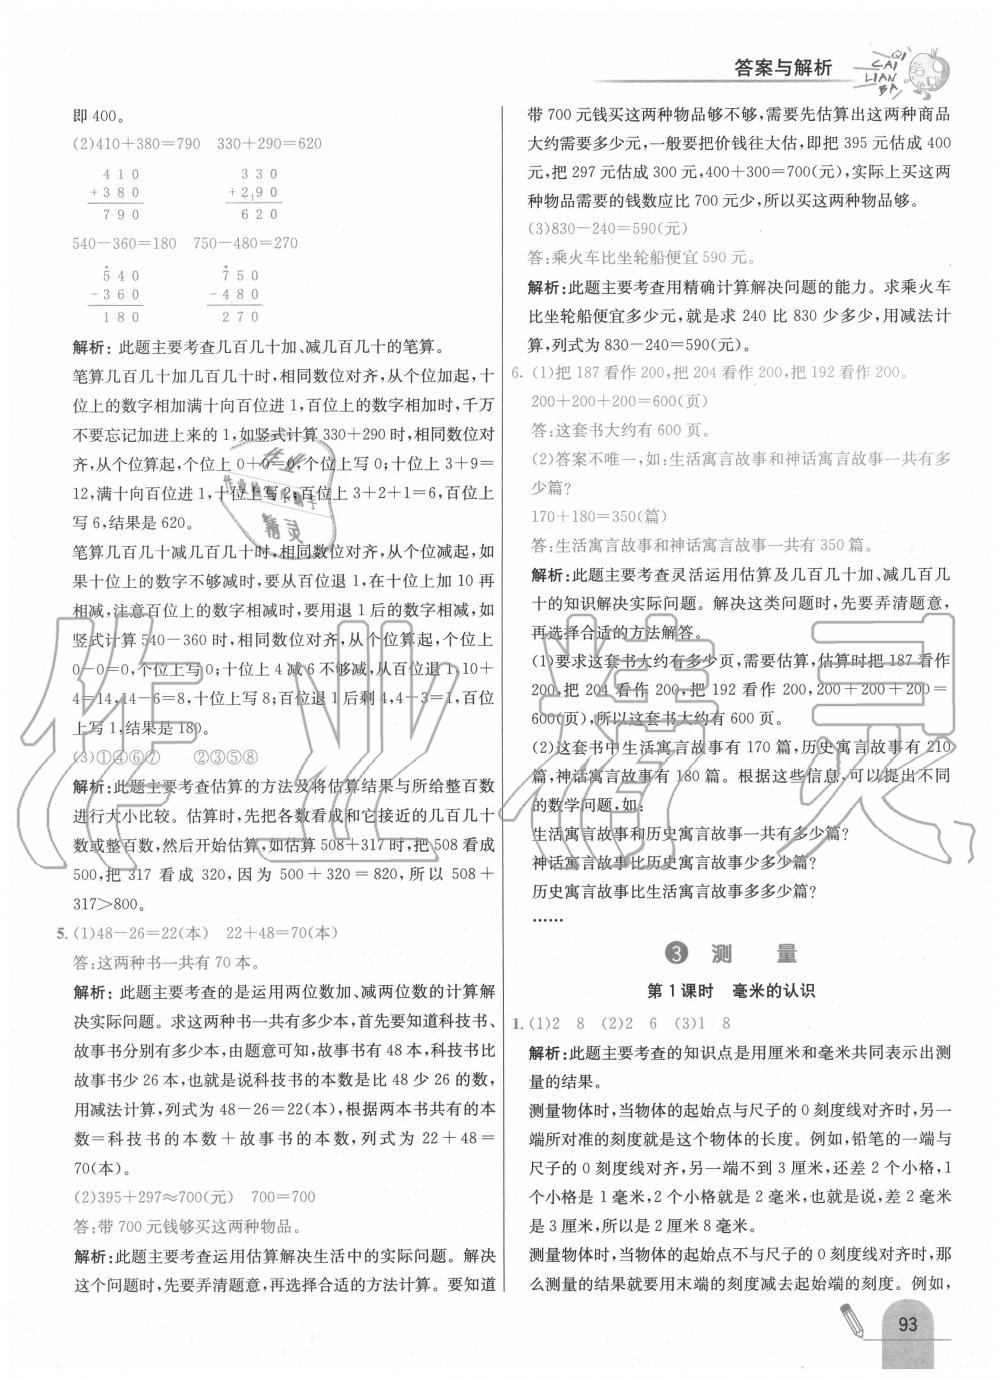 答案与解析
QI
CAI
LIAN
BA
即 400。
(2)410+380=790 330+290=620
4 1 0
+ 3 8 0
7 9 0
3 3 0
+ 2 1 9 0
6 2 0
540-360=180 750-480=270
5 4 0
- 3 6 0
1 8 0
7 5 0
- 4 8 0
2 7 0
解析: 此题主要考查几百几十加、减几百几十的笔算。
笔算几百几十加几百几十时,相同数位对齐,从个位加起,十
位上的数字相加满十向百位进 1,百位上的数字相加时,千万
不要忘记加进上来的 1,如竖式计算 330+290 时,相同数位对
齐,从个位算起,个位上 0+0=0,个位上写 0;十位上 3+9=
12,满十向百位进 1,十位上写 2;百位上 3+2+1=6,百位上
写 6,结果是 620。
笔算几百几十减几百几十时,相同数位对齐,从个位减起,如
果十位上的数字不够减时,要从百位退 1,在十位上加 10 再
相减,注意百位上的数字相减时,要用退 1 后的数字相减,如
竖式计算 540-360 时,相同数位对齐,从个位算起,个位上
0-0=0,个位上写 0;十位上 4 减 6 不够减,从百位退 1,10+
4=14,14-6=8,十位上写 8;百位退 1 后剩 4,4-3=1,百位
上写 1,结果是 180。
(3)①④⑥⑦ ②③⑤⑧
解析: 此题主要考查估算的方法及将估算结果与所给整百数
进行大小比较。估算时,先把各数看成和它接近的几百几十
数或整百数,然后开始估算,如估算 508+317 时,把 508 看成
500,把 317 看成 320,因为 500+320=820,所以 508+
317>800。
5. (1)48-26=22(本) 22+48=70(本)
答:这两种书一共有 70 本。
解析: 此题主要考查的是运用两位数加、减两位数的计算解
决实际问题。求这两种书一共有多少本,首先要知道科技书、
故事书分别有多少本,由题意可知,故事书有 48 本,科技书比
故事书少 26 本,也就是说科技书的本数是比 48 少 26 的数,
用减法计算,列式为 48-26=22(本),根据两本书共有的本
数=科技书的本数+故事书的本数,列式为 22+48=
70(本)。
(2)395+297≈700(元) 700=700
答:带 700 元钱够买这两种物品。
解析: 此题主要考查运用估算解决生活中的实际问题。解决
这个问题时,先要弄清题意,再选择合适的方法计算。要知道
带 700 元钱买这两种物品够不够,需要先估算出这两种商品
大约需要多少元,一般要把价钱往大估,即把 395 元估成 400
元,把 297 元估成 300 元,400+300=700(元),实际上买这两
种物品需要的钱数应比 700 元少,所以买这两种物品够。
(3)830-240=590(元)
答:乘火车比坐轮船便宜 590 元。
解析:此题主要考查用精确计算解决问题的能力。求乘火车
比坐轮船便宜多少元,就是求 240 比 830 少多少,用减法计
算,列式为 830-240=590(元)。
6. (1)把 187 看作 200,把 204 看作 200,把 192 看作 200。
200+200+200=600(页)
答:这套书大约有 600 页。
(2)答案不唯一,如:生活寓言故事和神话寓言故事一共有多
少篇?
170+180=350(篇)
答:生活寓言故事和神话寓言故事一共有 350 篇。
解析:此题主要考查灵活运用估算及几百几十加、减几百几
十的知识解决实际问题。解决这类问题时,先要弄清题意,
再选择合适的方法解答。
(1)要求这套书大约有多少页,需要估算,估算时把 187 看作
200,把 204 看作 200,把 192 看作 200,200+200+200=
600(页),所以这套书大约有 600 页。
(2)这套书中生活寓言故事有 170 篇,历史寓言故事有 210
篇,神话寓言故事有 180 篇。根据这些信息,可以提出不同
的数学问题,如:
生活寓言故事和历史寓言故事一共有多少篇?
神话寓言故事比历史寓言故事少多少篇?
历史寓言故事比生活寓言故事多多少篇?
……
3 测 量
第 1 课时 毫米的认识
1. (1)2 8 (2)2 6 (3)1 8
解析:此题主要考查的知识点是用厘米和毫米共同表示出测
量的结果。
测量物体时,当物体的起始点与尺子的 0 刻度线对齐时,另一
端所对准的刻度就是这个物体的长度。例如,铅笔的一端与
尺子的 0 刻度线对齐,另一端不到 3 厘米,还差 2 个小格,1
个小格是 1 毫米,2 个小格就是 2 毫米,也就是说,差 2 毫米
是 3 厘米,所以是 2 厘米 8 毫米。
测量物体时,当物体的起始点不与尺子的 0 刻度线对齐时,那
么测量的结果就要用末端的刻度减去起始端的刻度。例如,
93
作业精灵
作业
作业检查小助手
精灵